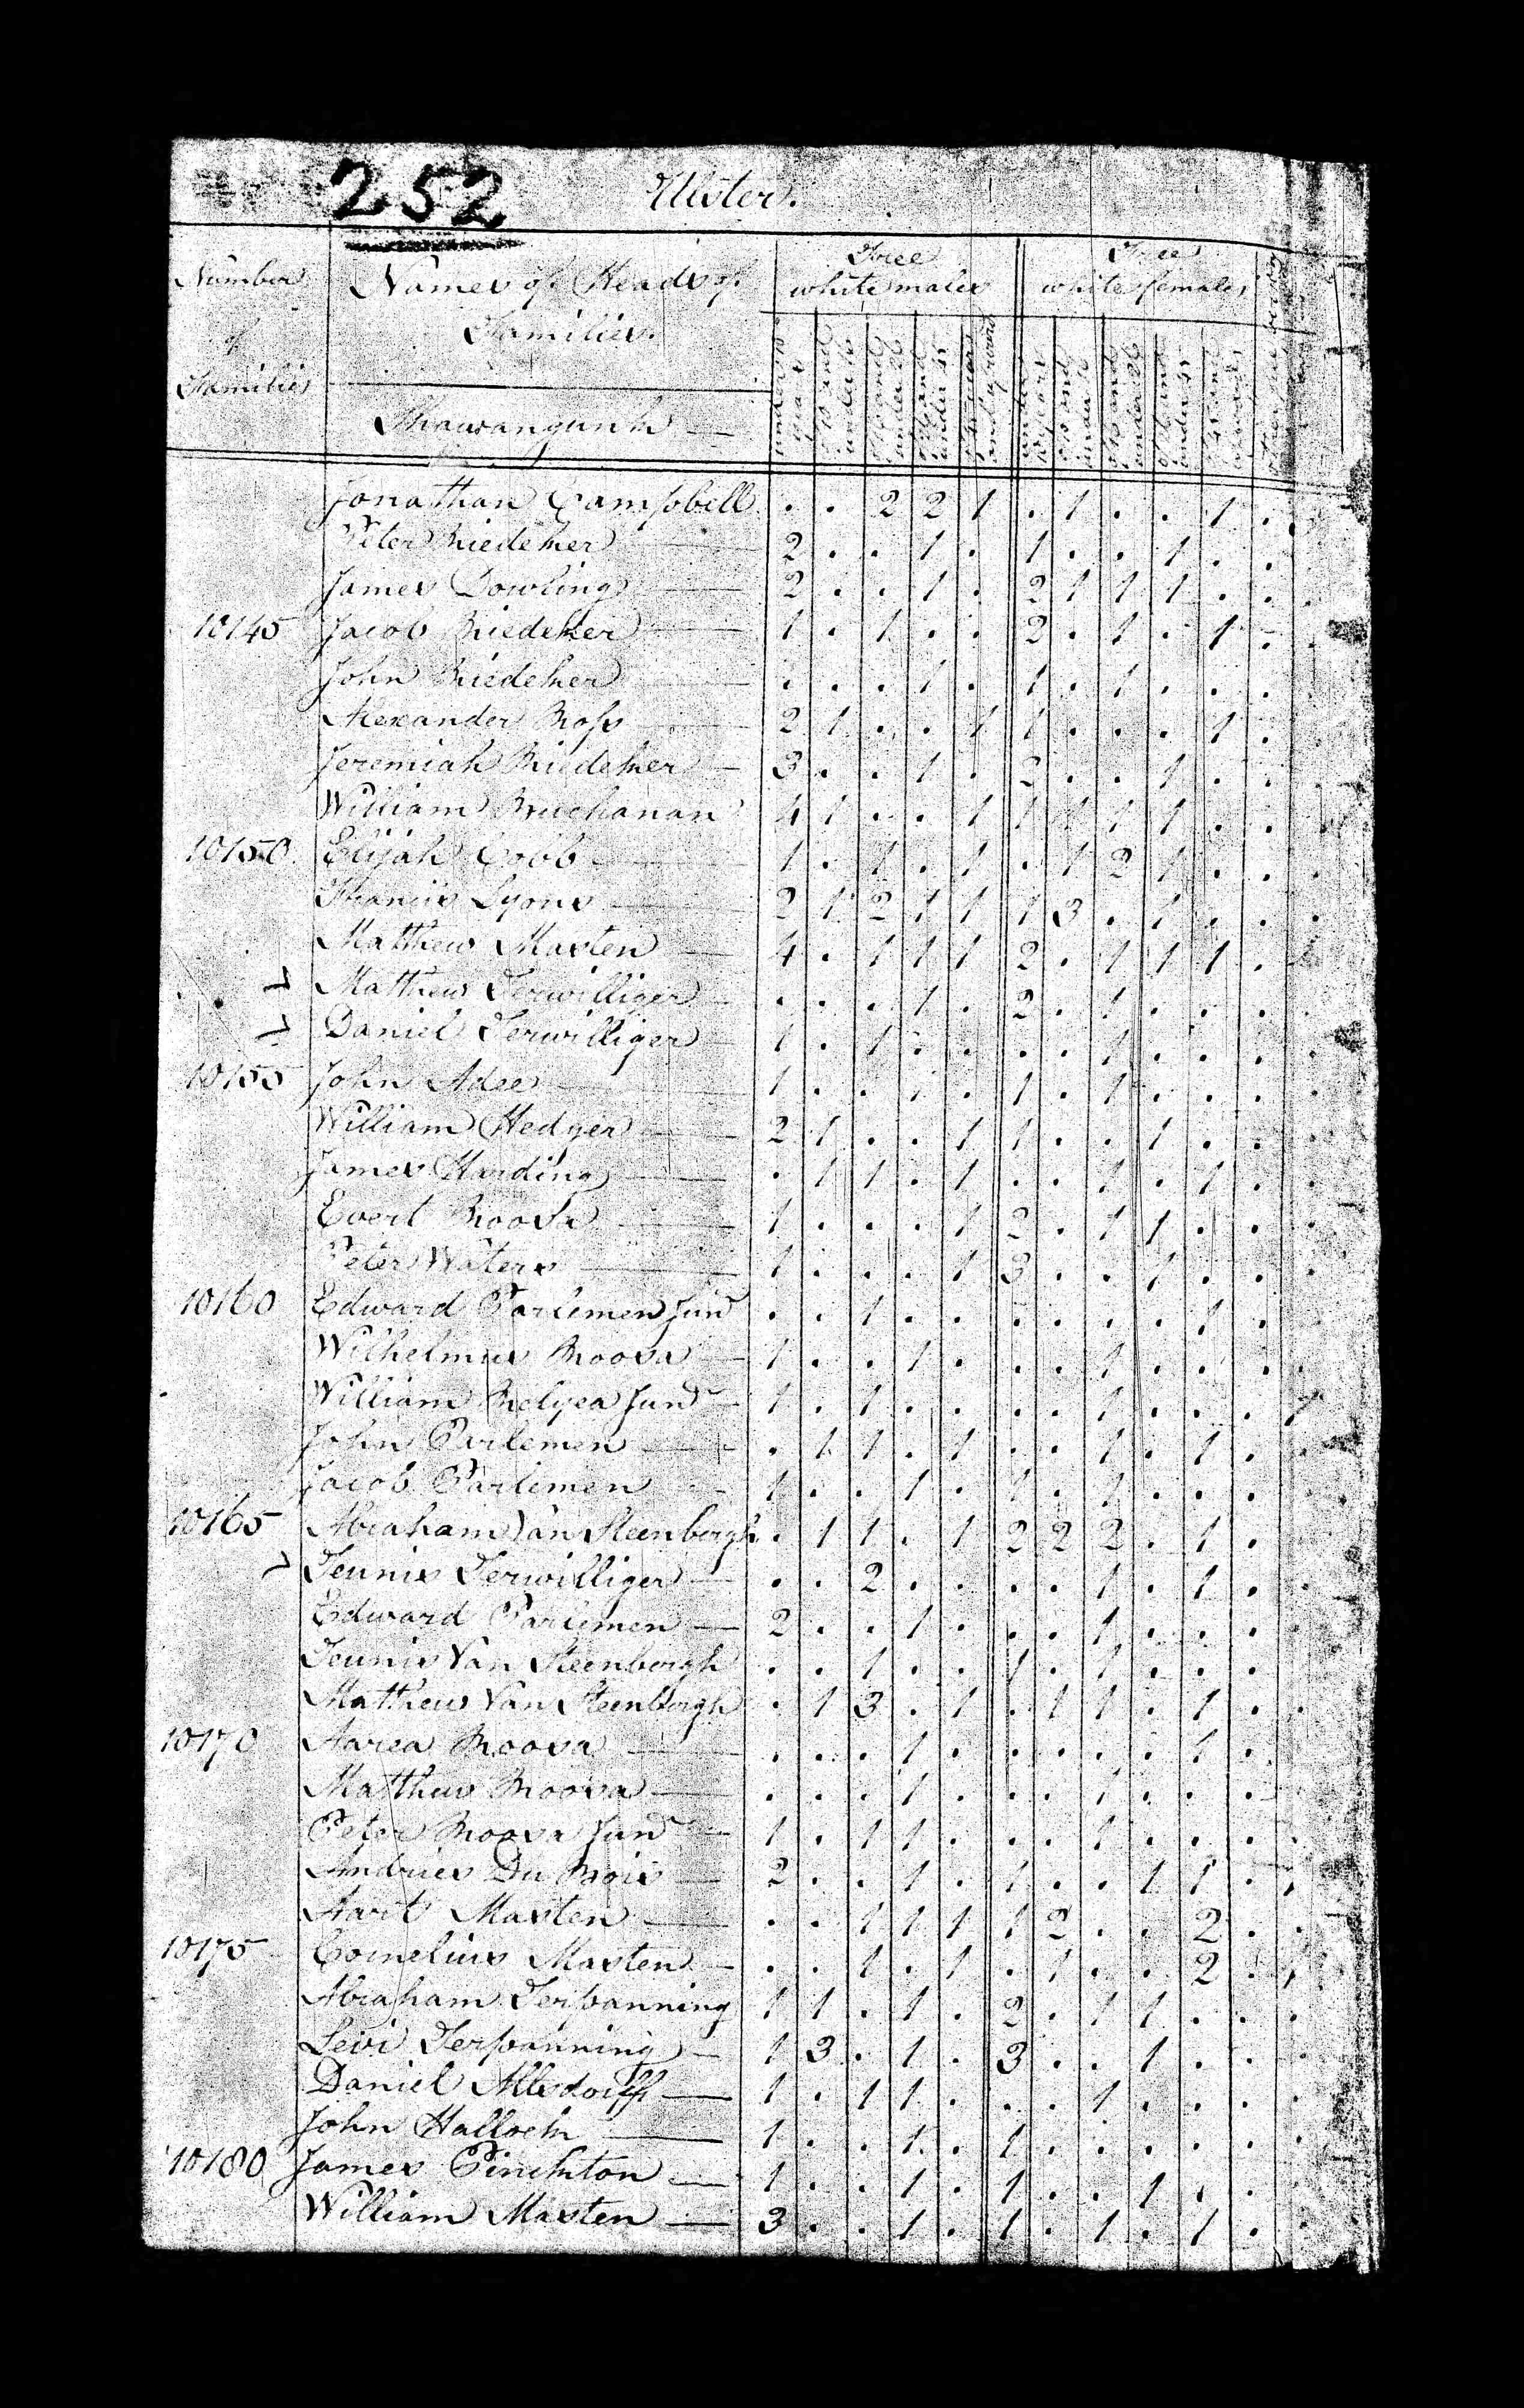 252 Ulster.
Number of Families
Names of Heads of Families.
Free white males
Free white females
under 10 years
of 10 and under 16
of 16 and under 26
of 26 and under 45
of 45 years and upwards
under 10 years
of 10 and under 16
of 16 and under 26
of 26 and under 45
of 45 and upwards
Shawangunk
Jonathan Campbell . . 2 2 1 . 1 . . 1 .
Peter Riedeker 2 . . 1 . 1 . . 1 . .
James Dowling 2 . . 1 . 2 1 1 1 . .
10145 Jacob Riedeker 1 . 1 . . 2 . 1 . 1 .
John Riedeker . . . 1 . 1 . 1 . . .
Alexander Ross 2 1 . . 1 1 . . . 1 .
Jeremiah Riedeker 3 . . 1 . 2 . . 1 . .
William Buchanan 4 1 . . 1 1 1 1 1 . .
10150 Elijah Cobb 1 . 1 . 1 . 1 2 1 . .
Francis Lyons 2 1 2 1 1 1 3 . 1 . .
Matthew Masten 4 . 1 1 1 2 . 1 1 1 .
Matthew Terwilliger . . . 1 . 2 . 1 . . .
Daniel Terwilliger 1 . 1 . . . . 1 . . .
10155 John Adee 1 . . 1 . 1 . 1 . . .
William Hedger 2 1 . . 1 1 . . 1 . .
James Harding . 1 1 . 1 . . 1 . 1 .
Evert Roosa 1 . . . 1 2 . 1 1 . .
Peter Waters 1 . . . 1 3 . . 1 . .
10160 Edward Parlemen Junr . . 1 . . . . . . 1 .
Wilhelmus Roosa 1 . . 1 . . . 1 . . .
William Relyea Junr 1 . 1 . . . . 1 . . . 1
John Parlemen . 1 1 . 1 . . 1 . 1 .
Jacob Parlemen 1 . . 1 . 1 . 1 . . .
10165 Abraham Van Steenbergh . 1 1 . 1 2 2 2 . 1 .
Teunis Terwilliger . . 2 . . . . 1 . 1 .
Edward Parlemen 2 . . 1 . . . 1 . . .
Teunis Van Steenbergh . . 1 . . 1 . 1 . . .
Matthew Van Steenbergh . 1 3 . 1 . 1 1 . 1 .
10170 Aarea Roosa . . . 1 . . . . . 1 .
Matthew Roosa . . . 1 . . . 1 . . .
Peter Roosa Junr 1 . 1 1 . . . 1 . . .
Andries Du Bois 2 . . 1 . 1 . . 1 1 .
Aart Masten . . 1 1 1 1 2 . . 2 .
10175 Cornelius Masten . . 1 . 1 . 1 . . 2 .
Abraham Terpanning 1 1 . 1 . 2 . 1 1 . .
Levi Terpanning 1 3 . 1 . 3 . . 1 . .
Daniel Allsdorff 1 . 1 1 . . . 1 . . .
John Hallock 1 . . 1 . 1 . . . . .
10180 James Pinckton 1 . . 1 . 1 . . 1 . .
William Masten 3 . . 1 . 1 . 1 . 1 .